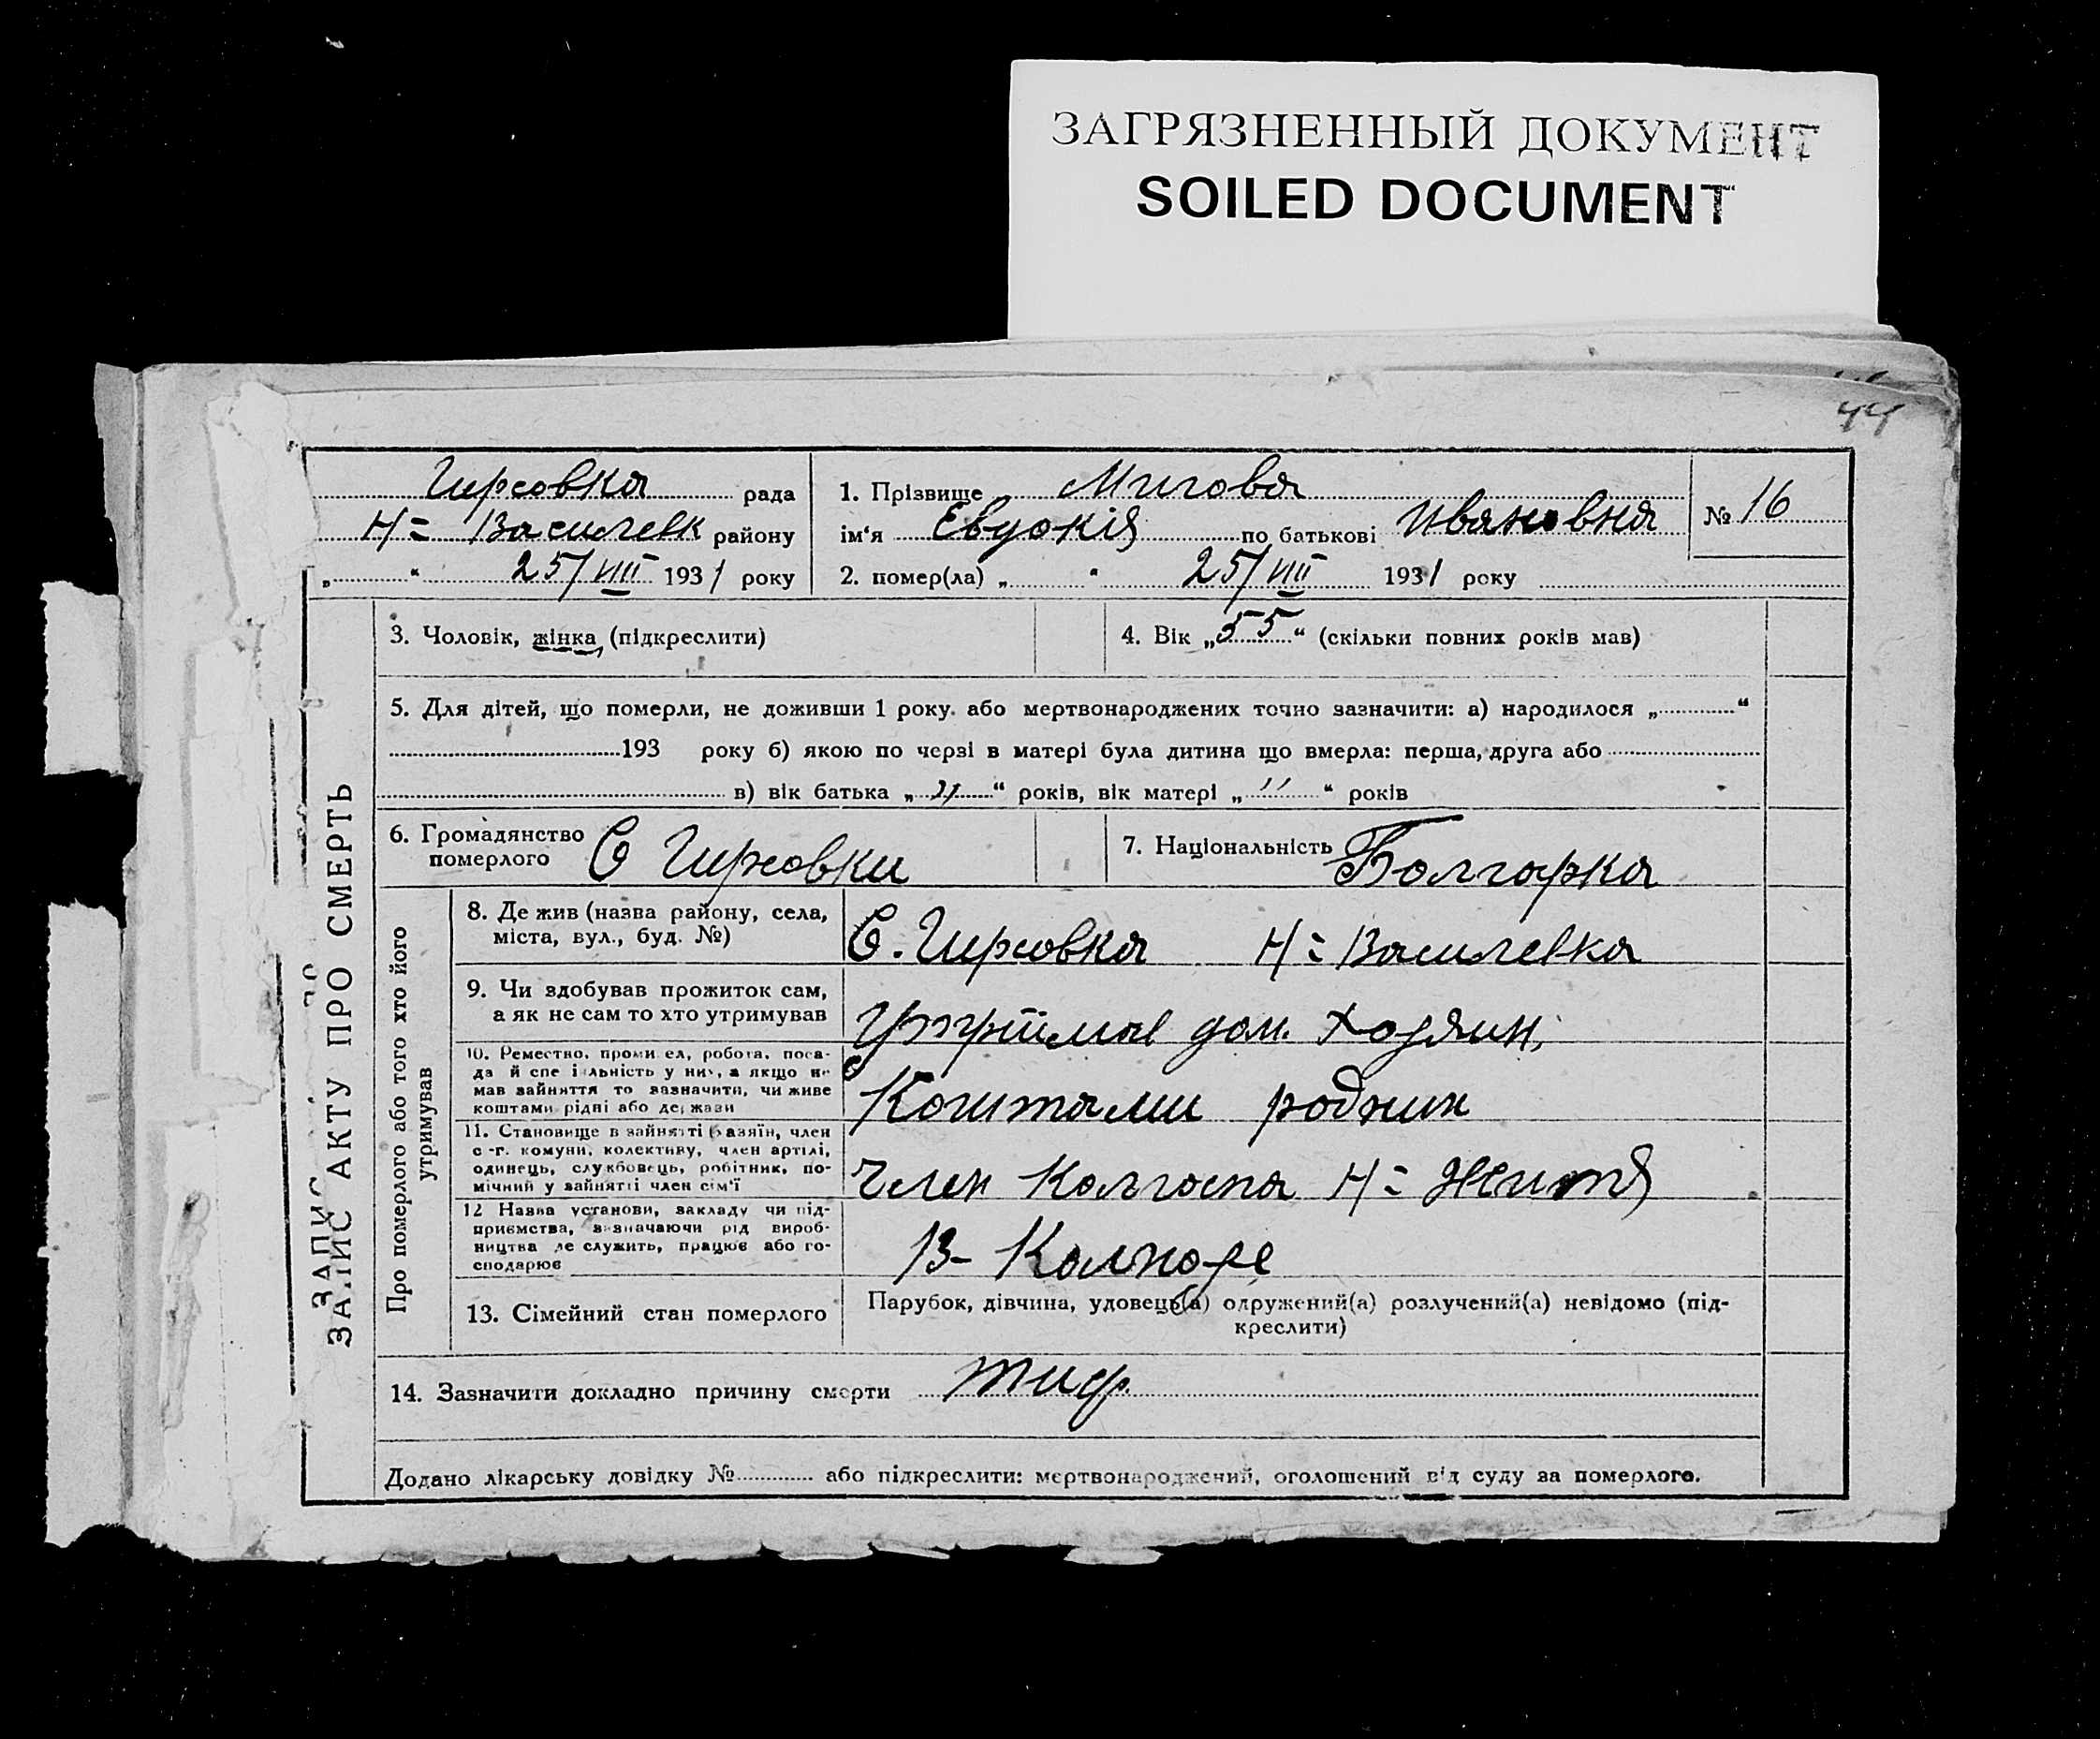 ЗАГРЯЗНЕННЫЙ ДОКУМЕНТ
SOILED DOCUMENT
44
Гирсовка рада
Н= Василевк району
„ “ 25/VIII 1931 року
1. Прізвище Мигова
ім‘я Евдокія по батькові Ивановна
2. помер(ла) „ “ 25/VIII 1931 року
№ 16
ЗАПИС
ЗАПИС АКТУ ПРО СМЕРТЬ
3. Чоловік, жінка (підкреслити)
4. Вік „55“ (скільки повних років мав)
5. Для дітей, що померли, не доживши 1 року або мертвонароджених точно зазначити: а) народилося „ “
193 року б) якою по черзі в матері була дитина що вмерла: перша, друга або
в) вік батька „ “ років, вік матері „ “ років
6. Громадянство
померлого С Гирсовки
7. Національність Болгарка
Про померлого або того хто його
утримував
8. Де жив (назва району, села,
міста, вул., буд. №)
С. Гирсовка Н= Василевка
9. Чи здобував прожиток сам,
а як не сам то хто утримував
дом. Хозяин,
10. Ремество, промисел, робота, поса-
да й спеціяльність у них, а якщо не
мав зайняття то зазначити, чи живе
коштами рідні або держави
Коштами родних
11. Становище в зайнятті (хазяїн, член
с.-г. комуни, колективу, член артілі,
одинець, службовець, робітник, по-
мічний у зайнятті член сім‘ї
Член Колгоспа Н= Життя
12 Назва установи, закладу чи під-
приємства, зазначаючи рід вироб-
ництва де служить, працює або го-
сподарює
В-
13. Сімейний стан померлого
Парубок, дівчина, удовець(а) одружений(а) розлучений(а) невідомо (під-
креслити)
14. Зазначити докладно причину смерти тиф.
Додано лікарську довідку № або підкреслити: мертвонароджений, оголошений від суду за померлого.